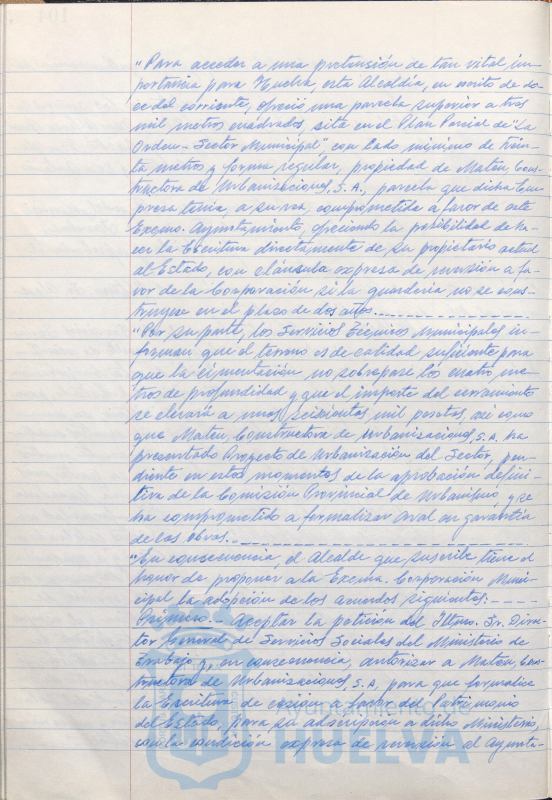 "Para acceder a una pretensión de tan vital im-
portancia para Huelva, esta Alcaldía, en escrito de do-
ce del corriente, ofreció una parcela superior a tres
mil metros cuadrados, sita en el Plan Parcial de "La
Orden - Sector Municipal", con lado mínimo de trein-
ta metros y forma regular, propiedad de Mateu, Cons-
tructora de Urbanizaciones, S.A., parcela que dicha Em-
presa tenía, a su vez, comprometida a favor de este
Excmo. Ayuntamiento, ofreciendo la posibilidad de ha-
cer la Escritura directamente de su propietario actual
al Estado, con cláusula expresa de reversión a fa-
vor de la Corporación si la guardería no se cons-
truyese en el plazo de dos años.
"Por su parte, los Servicios Técnicos Municipales in-
forman que el terreno es de calidad suficiente para
que la cimentación no sobrepase los cuatro me-
tros de profundidad y que el importe del cerramiento
se elevará a unas seiscientas mil pesetas, así como
que Mateu Constructora de Urbanizaciones, S.A. ha
presentado Proyecto de Urbanización del Sector, pen-
diente en estos momentos de la aprobación defini-
tiva de la Comisión Provincial de Urbanismo y se
ha comprometido a formalizar aval en garantía
de las obras.
"En consecuencia, el Alcalde que suscribe tiene el
honor de proponer a la Excma. Corporación Muni-
cipal la adopción de los acuerdos siguientes: - - -
Primero. - Aceptar la petición del Iltmo. Sr. Direc-
tor General de Servicios Sociales del Ministerio de
Trabajo y, en consecuencia, autorizar a Mateu, Cons-
tructora de Urbanizaciones, S.A, para que formalice
la Escritura de cesión a favor del Patrimonio
del Estado, para su adscripción a dicho Ministerio,
con la condición expresa de reversión al Ayunta-
HUELVA